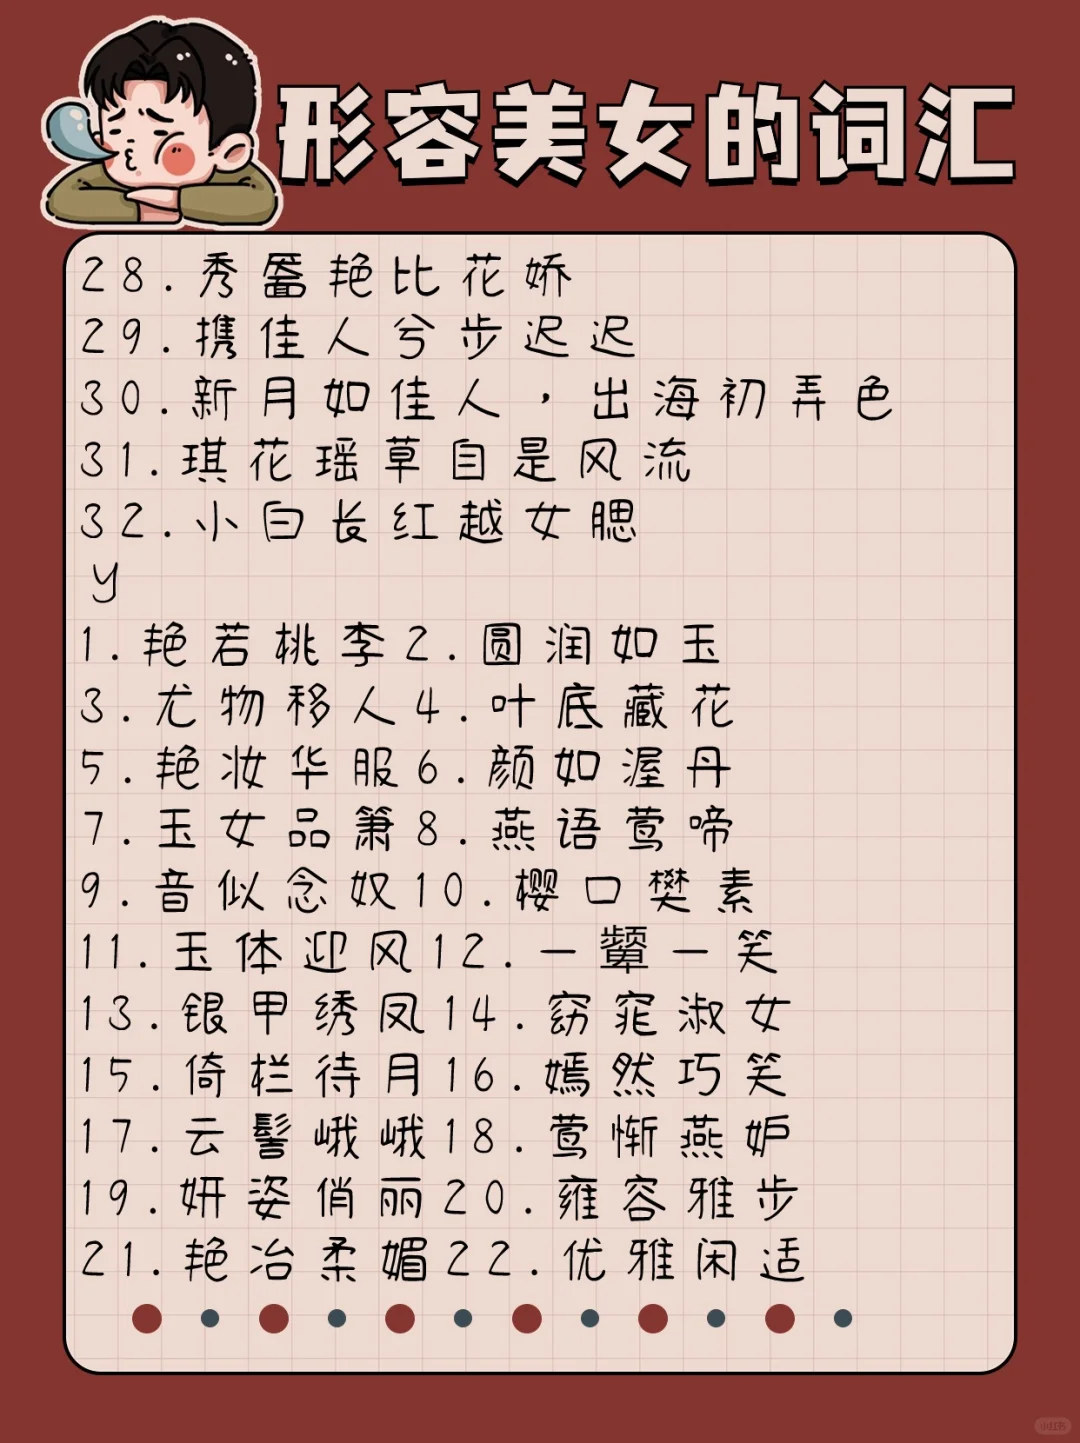 形容美女的词汇
28.秀靥艳比花娇
29.携佳人兮步迟迟
30.新月如佳人，出海初弄色
31.琪花瑶草自是风流
32.小白长红越女腮
y
1.艳若桃李2.圆润如玉
3.尤物移人4.叶底藏花
5.艳妆华服6.颜如渥丹
7.玉女品箫8.燕语莺啼
9.音似念奴10.樱口樊素
11.玉体迎风12.一颦一笑
13.银甲绣凤14.窈窕淑女
15.倚栏待月16.嫣然巧笑
17.云髻峨峨18.莺惭燕妒
19.妍姿俏丽20.雍容雅步
21.艳冶柔媚22.优雅闲适
小红书